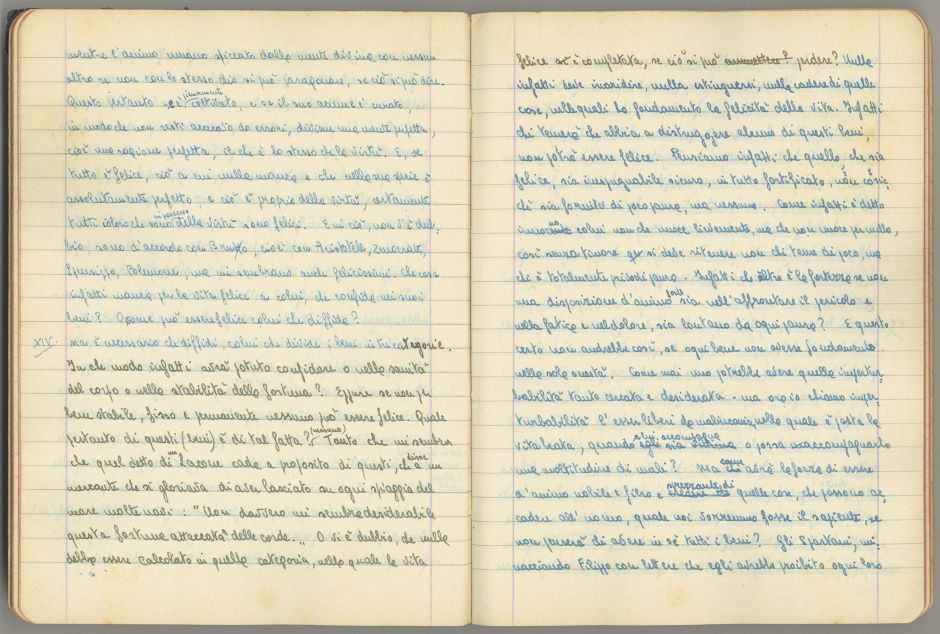 mentre l'animo umano spiccato dalla mente divina con nessun
altro se non con lo stesso dio si può paragonare, se ciò si può dire.
Questo pertanto se è coltivato, e se il suo acume è curato,
in modo che non resti accecato da errori, diviene una mente perfetta,
cioè una ragione perfetta, il che è lo stesso che la virtù. E, se
tutto è felice, ciò a cui nulla manca e che nella sua specie è
assolutamente perfetto, e ciò è proprio della virtù, certamente
tutti coloro che sono in possesso della virtù sono felici. E in ciò, non v'è dub-
bio, sono d'accordo con Bruto, cioè con Aristotele, Senocrate,
Speusippo, Polemone, ma mi sembrano anche felicissimi. Che cosa
infatti manca per la vita felice a colui, che confida nei suoi
beni? O come può essere felice colui che diffida?
XIV. ma è necessario che diffidi, colui che divide i beni in tre categorie.
In che modo infatti avrà potuto confidare o nella sanità
del corpo o nella stabilità della fortuna? Eppure se non per
bene stabile, fisso e permanente nessuno può essere felice. Quale
pertanto di questi (beni) è di tal fatta? Tanto che mi sembra
che quel detto di un Lacone cade a proposito di questi, che disse a un
mercante che si gloriava di aver lasciato su ogni spiaggia del
mare molte navi: "Non davvero mi sembra desiderabile
questa fortuna attaccata delle corde.„ O vi è dubbio, che nulla
debba essere calcolato in quella categoria, nella quale la vita
felice è completata, se ciò si può perdere? Nulla
infatti deve inaridire, nulla estinguersi, nulla cadere di quelle
cose, nelle quali ha fondamento la felicità della vita. Infatti
chi temerà che abbia a distruggere alcuno di questi beni,
non potrà essere felice. Pensiamo infatti che quello, che sia
felice, sia inespugnabile sicuro, in tutto fortificato, non così
chi sia fornito di poca paura, ma nessuna. Come infatti è detto
innocuo colui non che nuoce lievemente, ma che non nuoce per nulla,
così senza timore si deve ritenere non chi teme di poco, ma
chi è totalmente privo di paura. Infatti che altro è la fortezza se non
una disposizione d'animo forte sia nell'affrontare il pericolo e
nella fatica e nel dolore, sia lontana da ogni paura? E questo
certo non andrebbe così, se ogni bene non avesse fondamento
nella sola onestà. Come mai uno potrebbe avere quella impertur-
babilità tanto cercata e desiderata - ma ora io chiamo imper-
turbabilità l'esser liberi da malinconia, nella quale è posta la
vita beata, quando o possa accompagnarlo
una moltitudine di mali? Ma come avrà la forza di essere
d'animo nobile e fiero e sprezzante di quelle cose, che possono ac-
cadere all'uomo, quale noi vorremmo fosse il sapiente, se
non penserà di avere in sé tutti i beni? Gli Spartani, mi-
nacciando Filippo con lettere che egli avrebbe proibito ogni loro